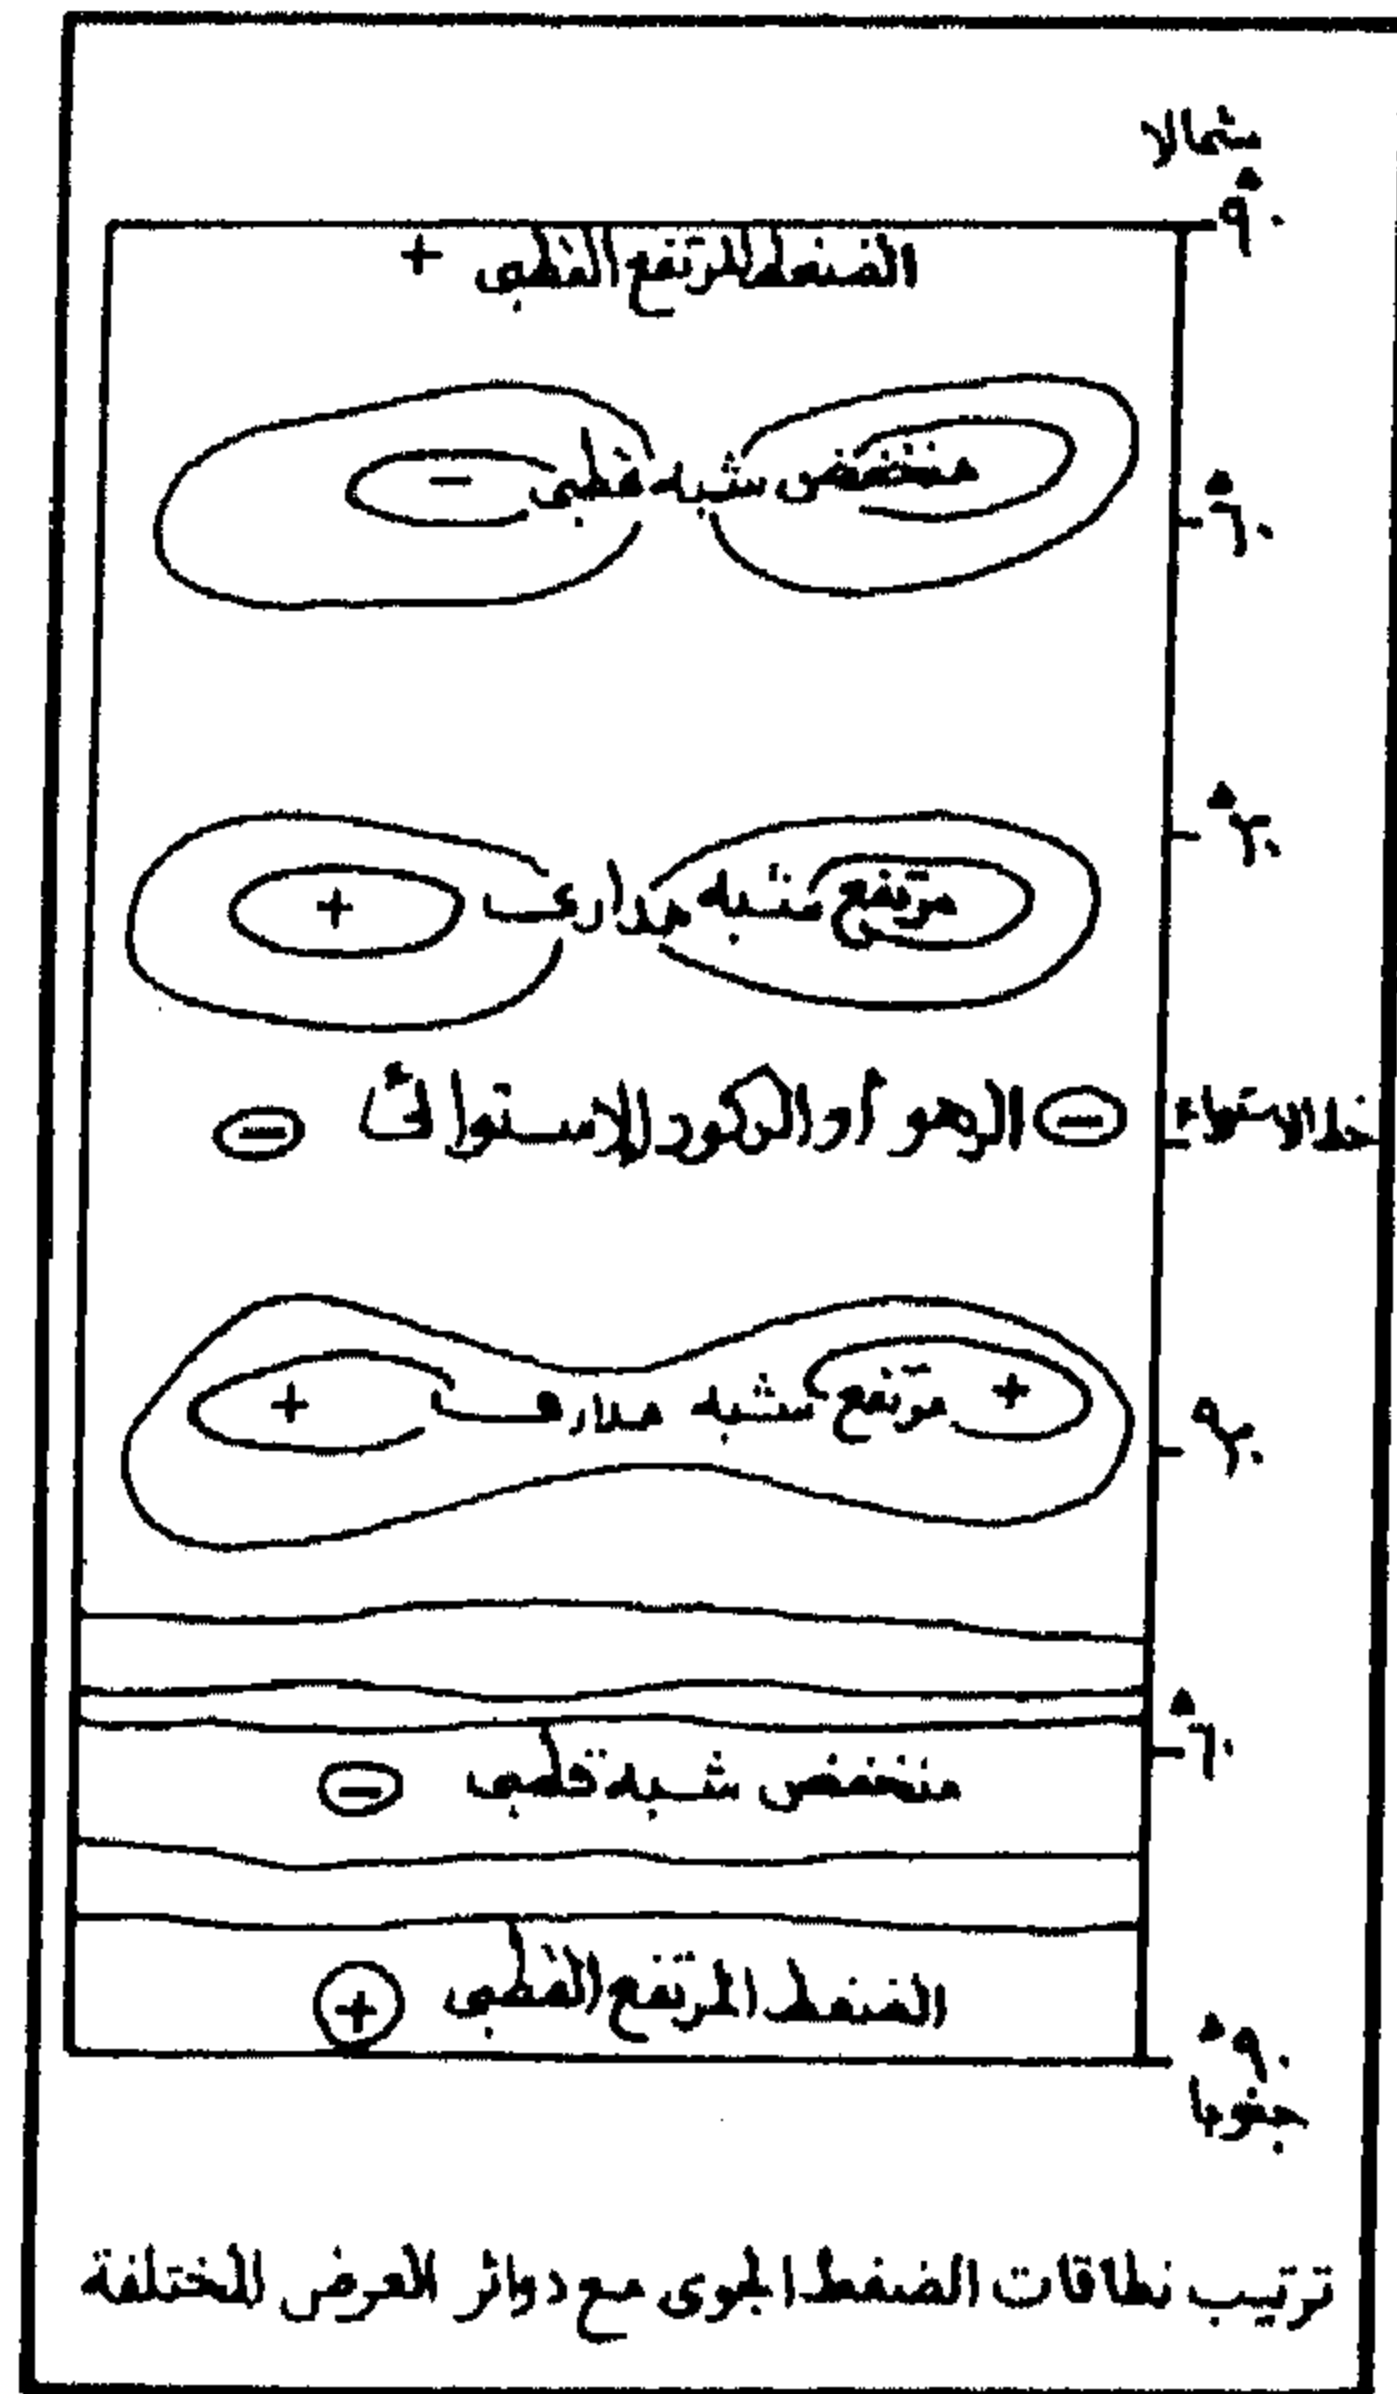 شمالا
٩٠°
الضغط المرتفع القطبى +
منخفض شبه قطبى -
٦٠°
٣٠°
مرتفع شبه مدارى +
خط الاستواء - الرهو أو الركود الاستوائى -
+ مرتفع شبه مدارى +
٣٠°
٦٠°
منخفض شبه قطبى -
الضغط المرتفع القطبى +
٩٠°
جنوبا
ترتيب نطاقات الضغط الجوى مع دوائر العرض المختلفة